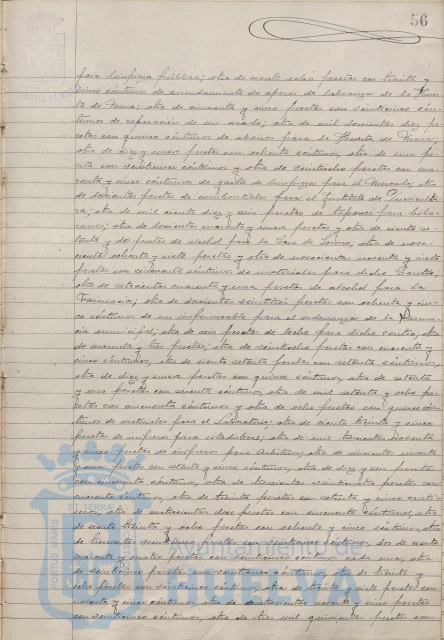 56
para limpieza pública; otra de ciento ocho pesetas con treinta y
cinco céntimos de arrendamiento de aperos de labranza de la
ta de Mena; otra de cincuenta y cinco pesetas con veinticinco cén-
timos de reparación de un arado; otra de mil doscientas diez pe-
setas con quince céntimos de abonos para la Huerta de Mena;
otra de diez y nueve pesetas con ochenta céntimos, otra de una pe-
seta con veinticinco céntimos y otra de veintiocho pesetas con cua-
renta y cinco céntimos de gastos de limpieza para el Mercado; otra
de doscientas pesetas de combustibles para el Instituto de
otra de mil ciento diez y seis pesetas de
otra de doscientas cuarenta y una pesetas y otra de ciento se-
tenta y dos pesetas de alcohol para la Casa de Socorro; otra de nove-
cientas ochenta y siete pesetas y otra de novecientas noventa y siete
pesetas con cincuenta céntimos de materiales para dicho Centro;
otra de setecientas cuarenta y una pesetas de alcohol para la
Farmacia; otra de doscientas veintitrés pesetas con ochenta y cin-
co céntimos de un impermeable para el ordenanza de la
cia municipal; otra de seis pesetas de leche para dicho centro; otra
de cuarenta y tres pesetas; otra de veintiocho pesetas con cuarenta y
cinco céntimos, otra de ciento setenta pesetas con setenta céntimos,
otra de diez y nueve pesetas con quince céntimos, otra de setenta
y una pesetas con sesenta céntimos, otra de mil setenta y ocho pe-
setas con cincuenta céntimos y otra de ocho pesetas con quince cén-
timos de materiales para el Laboratorio; otra de ciento treinta y cinco
pesetas de impresos para estadísticas; otra de mil trescientas noventa
y cinco pesetas de impresos para Arbitrios; otra de cincuenta
y una pesetas con setenta y cinco céntimos, otra de diez y seis pesetas
con cincuenta céntimos, otra de trescientas veinticuatro pesetas con
cuarenta céntimos, otra de treinta pesetas con setenta y cinco cénti-
mos, otra de cuatrocientas doce pesetas con cincuenta céntimos, otra
de ciento treinta y ocho pesetas con setenta y cinco céntimos, otra
de pesetas con veinticinco céntimos, dos de ciento
cuarenta y cuatro pesetas con veinticinco céntimos cada una, otra
de veinticinco pesetas con veinticinco céntimos, otra de treinta y
ocho pesetas con veinticinco céntimos, otra de treinta y siete pesetas con
noventa y cinco céntimos, otra de doscientas noventa y cinco pesetas
con veinticinco céntimos, otra de tres mil quinientas pesetas con